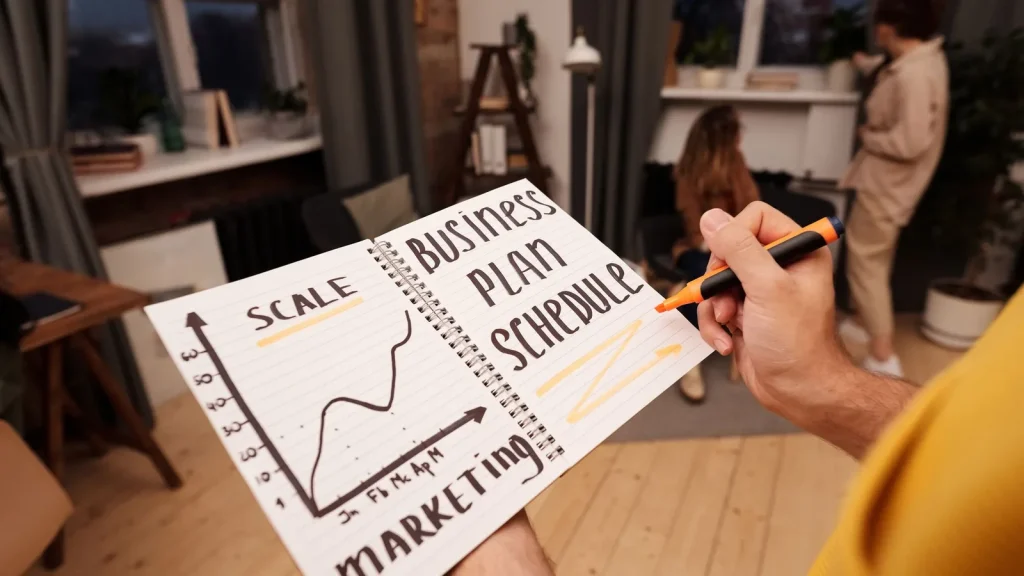 SCALE
60
50
40
30
20
10
1
Ja Fb Mc Ap M
MARKETING
BUSINESS
PLAN
SCHEDULE